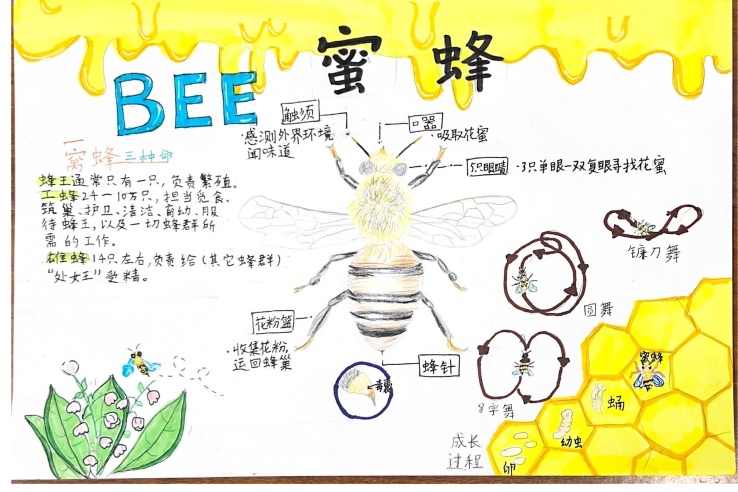 蜜蜂
BEE
触须
·感测外界环境
闻味道
口器
·吸取花蜜
5只眼睛
·3只单眼一双复眼寻找花蜜
一
窝蜂三种命
蜂王通常只有一只,负责繁殖。
工蜂24一10万只,担当觅食、
筑巢、护卫、清洁、育幼、服
侍蜂王,以及一切蜂群所
需的工作。
雄蜂14只左右,负责给(其它蜂群)
“处女王”受精。
镰刀舞
圆舞
花粉篮
·收集花粉,
运回蜂巢
蜂针
毒囊
8字舞
蜜蜂
蛹
幼虫
卵
成长
过程